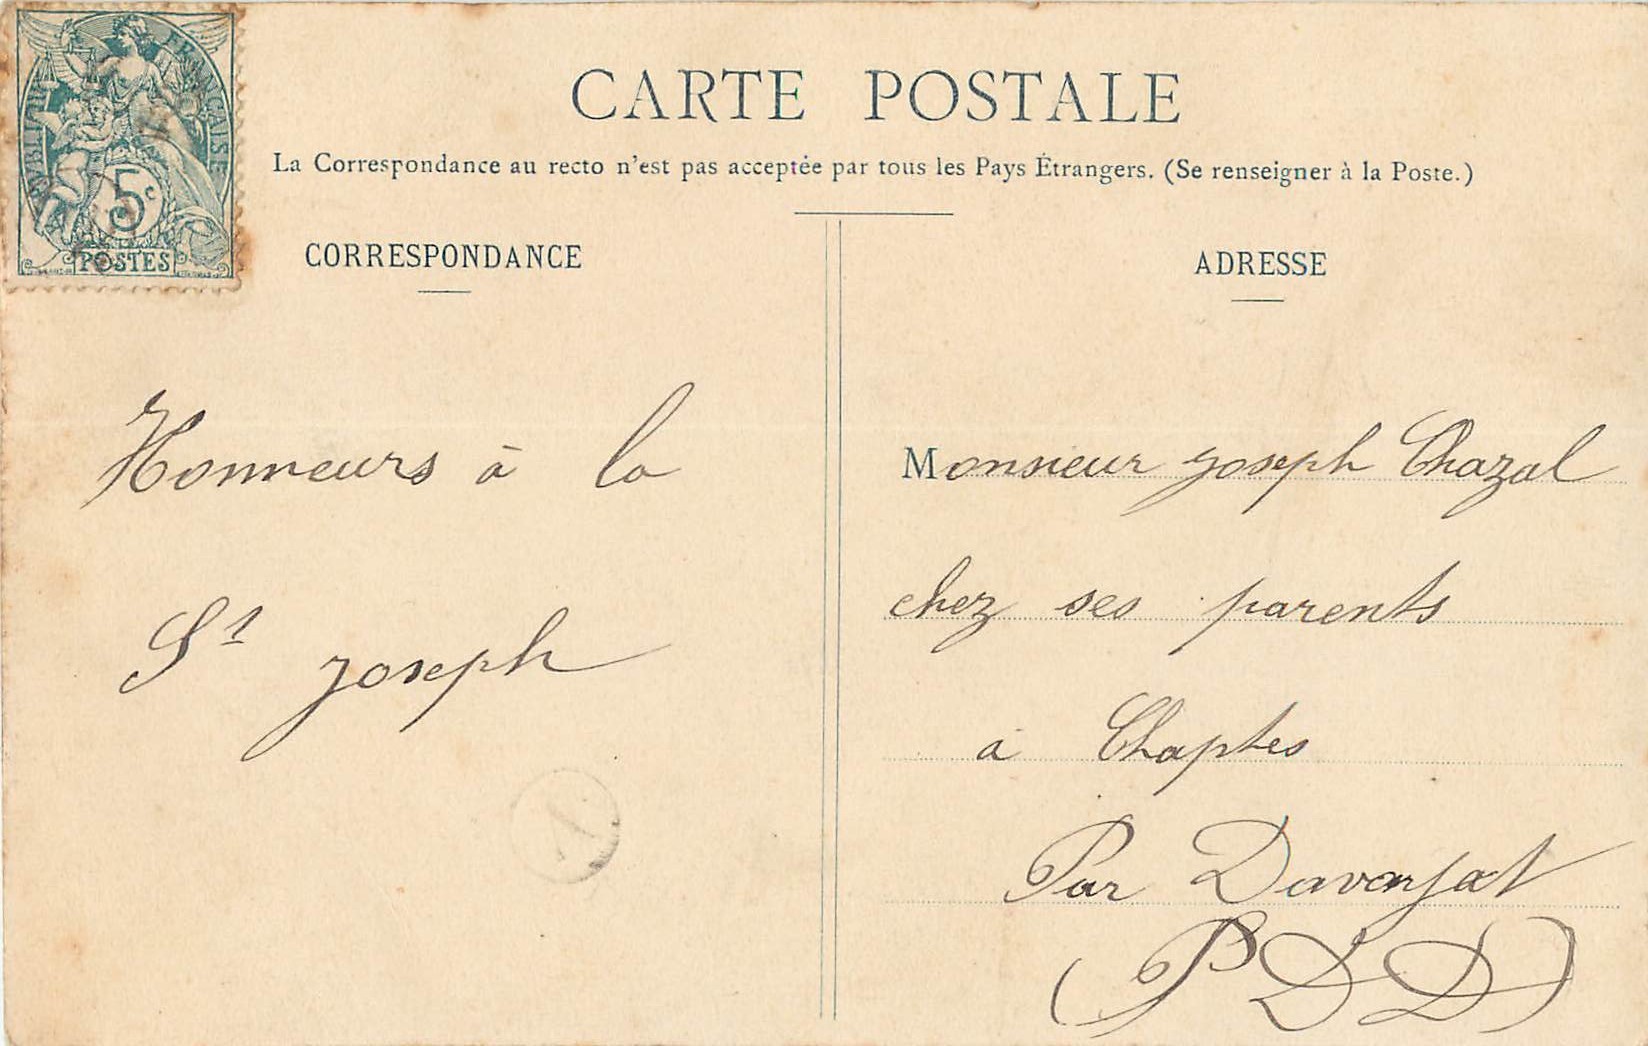 RÉPUBLIQUE FRANÇAISE
5c
POSTES
CARTE POSTALE
La Correspondance au recto n'est pas acceptée par tous les Pays Étrangers. (Se renseigner à la Poste.)
CORRESPONDANCE
Honneurs à la
St Joseph
ADRESSE
Monsieur Joseph Chazal
chez ses parents
à Chaptes
Par Davayat
(PDD)